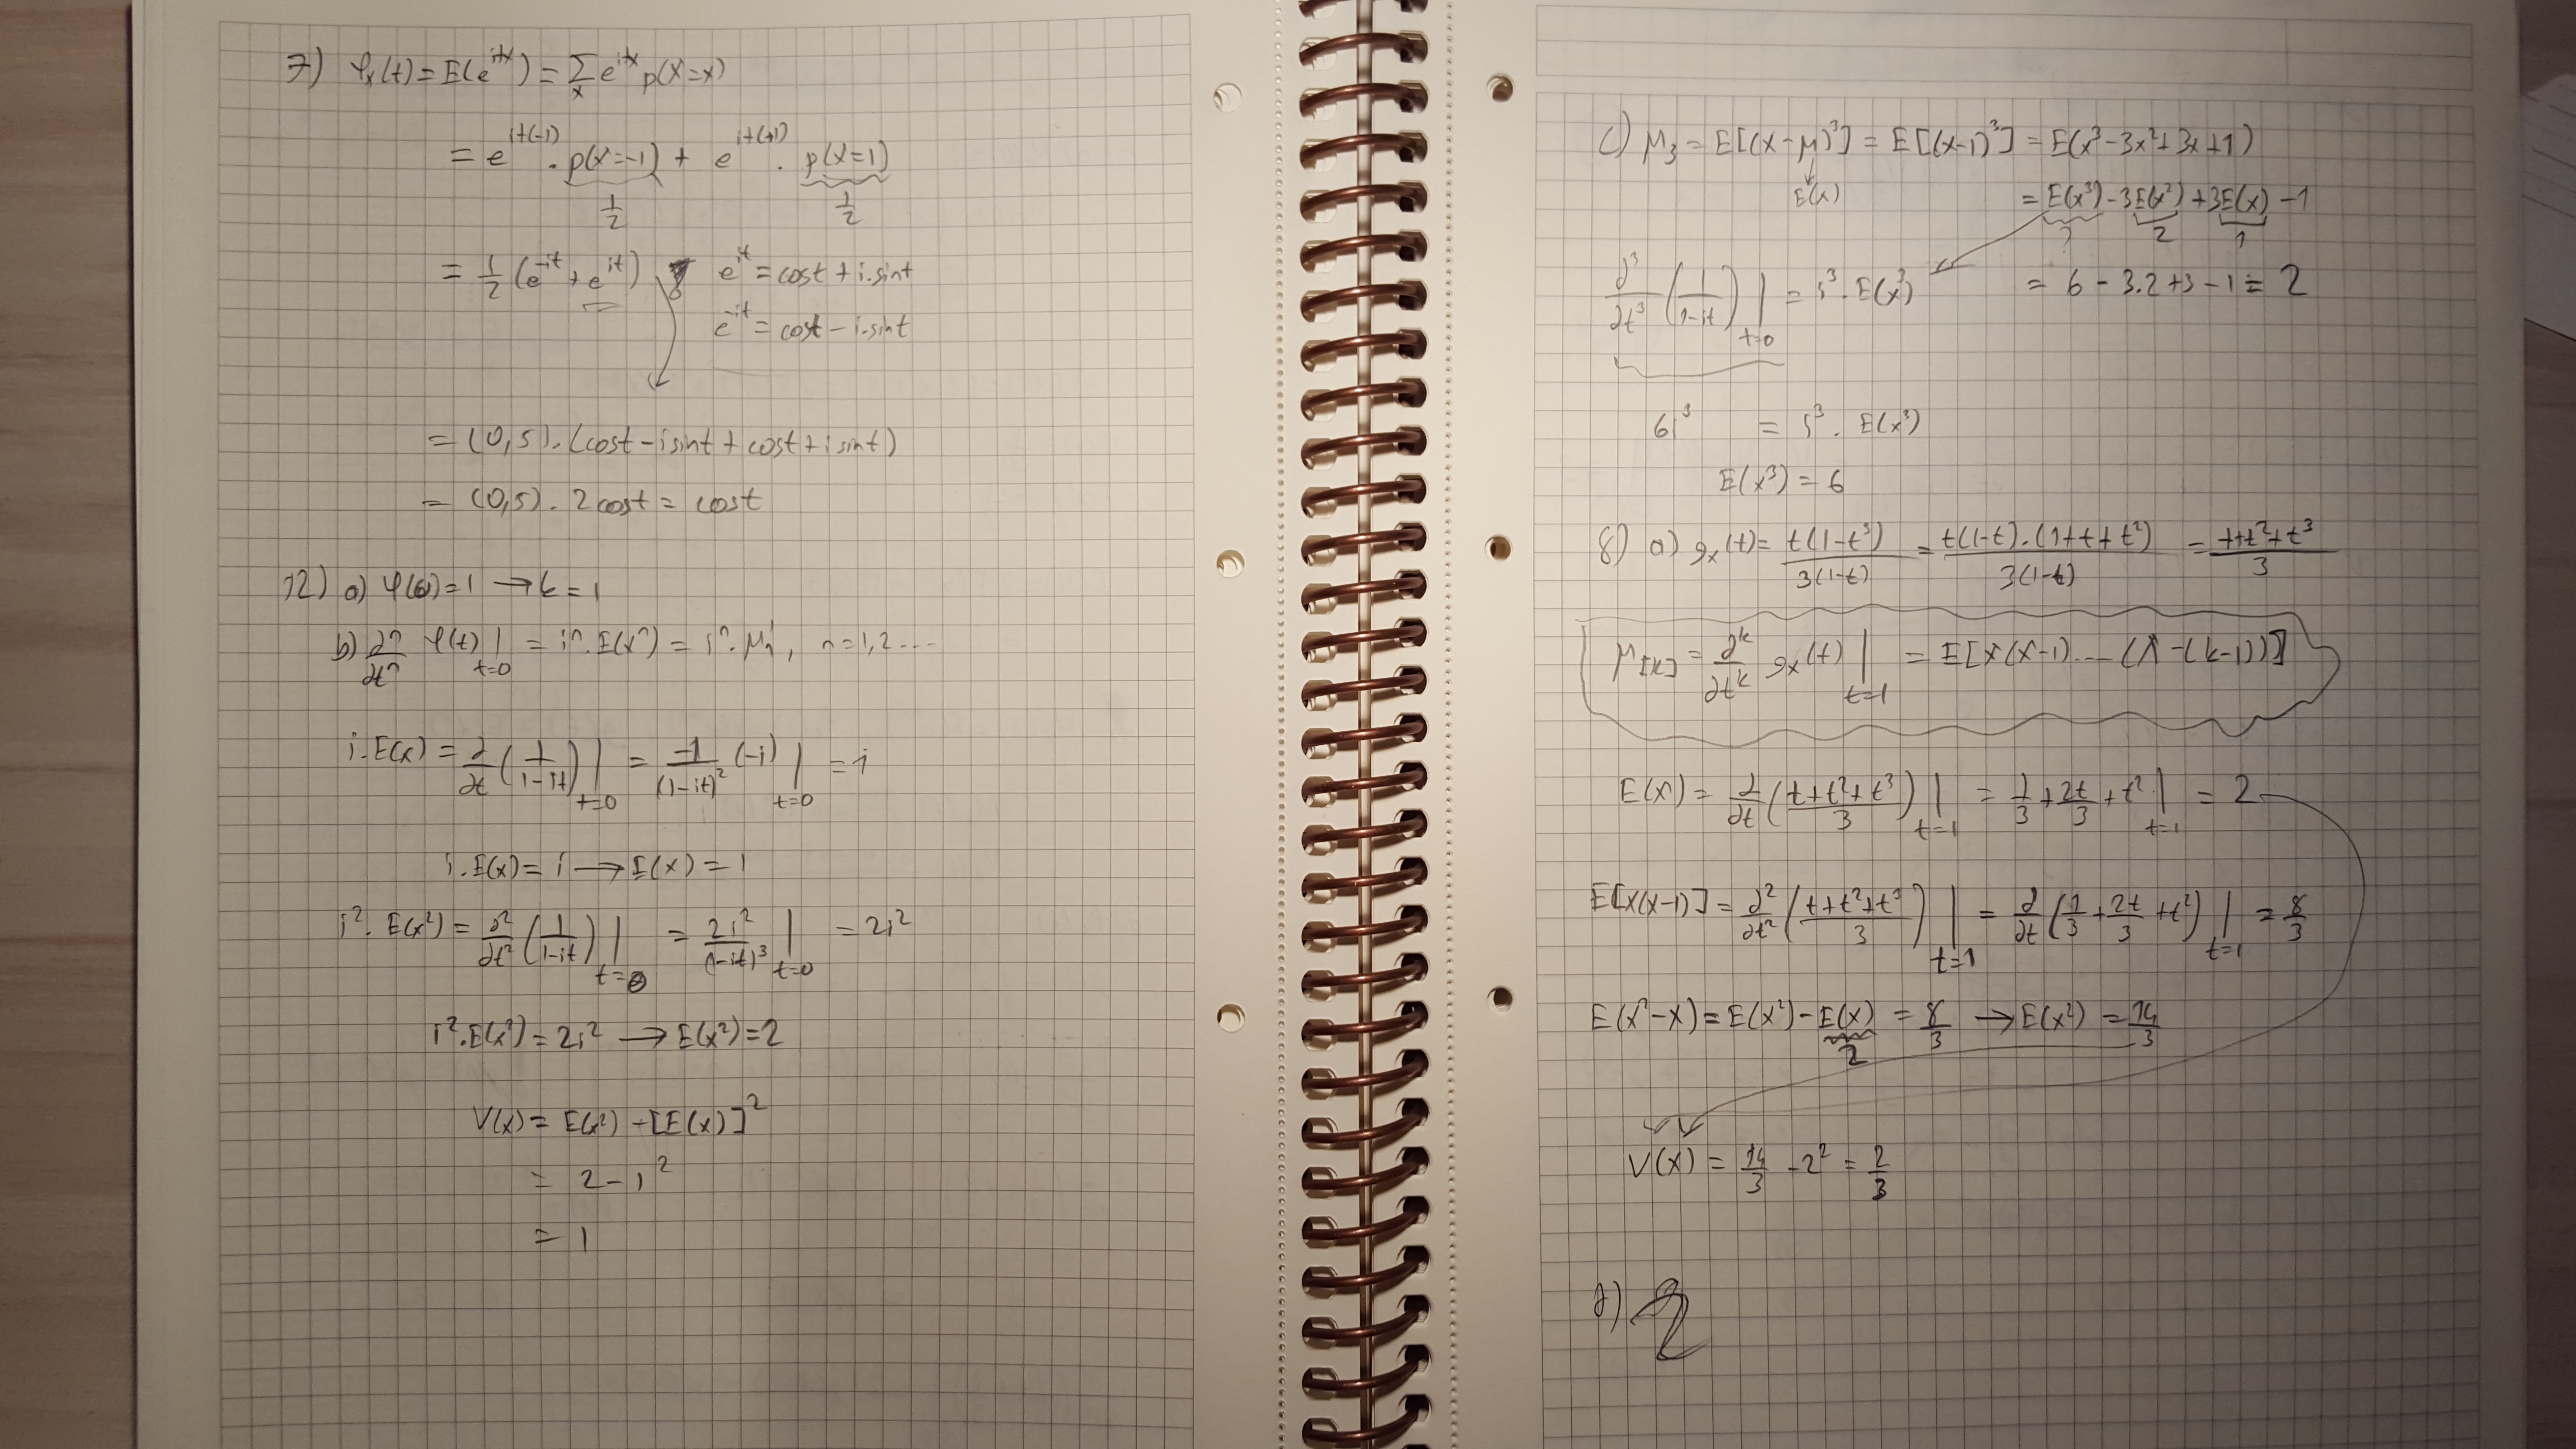 7) φₓ(t) = E(e^{itx}) = Σₓ e^{itx} p(X=x)
= e^{it(-1)} . p(X=-1) + e^{it(+1)} . p(X=1)
1/2 1/2
= 1/2 (e^{-it} + e^{it}) e^{it} = cost + i.sint
e^{-it} = cost - i.sint
= (0,5).(cost - isint + cost + isint)
= (0,5). 2cost = cost
12) a) φ(0) = 1 → k = 1
b) ∂ⁿ/∂tⁿ φ(t)|_{t=0} = iⁿ.E(xⁿ) = iⁿ.μ'ₙ, n=1,2....
i.E(x) = ∂/∂t (1/(1-it))|_{t=0} = -1/(1-it)² (-i)|_{t=0} = i
i.E(x) = i → E(x) = 1
i².E(x²) = ∂²/∂t² (1/(1-it))|_{t=0} = 2i²/(1-it)³|_{t=0} = 2i²
i².E(x²) = 2i² → E(x²) = 2
V(x) = E(x²) - [E(x)]²
= 2 - 1²
= 1
c) μ₃ = E[(x-μ)³] = E[(x-1)³] = E(x³-3x²+3x+1)
E(x)
= E(x³) - 3E(x²) + 3E(x) - 1
? 2 1
∂³/∂t³ (1/(1-it))|_{t=0} = i³.E(x³)
= 6 - 3.2 + 3 - 1 = 2
6i³ = i³. E(x³)
E(x³) = 6
8) a) gₓ(t) = t(1-t³)/3(1-t) = t(1-t).(1+t+t²)/3(1-t) = t+t²+t³/3
μ_{[k]} = ∂ᵏ/∂tᵏ gₓ(t)|_{t=1} = E[X(X-1)....(X-(k-1))]
E(X) = ∂/∂t (t+t²+t³/3)|_{t=1} = 1/3 + 2t/3 + t²|_{t=1} = 2
E[X(X-1)] = ∂²/∂t² (t+t²+t³/3)|_{t=1} = ∂/∂t (1/3 + 2t/3 + t²)|_{t=1} = 8/3
E(X²-X) = E(X²) - E(X) = 8/3 → E(X²) = 14/3
2
V(X) = 14/3 - 2² = 2/3